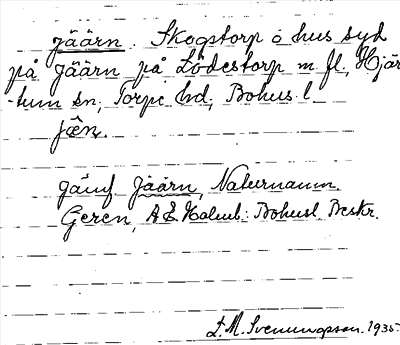 Jäärn. Skogstorp o hus syd
på Jäärn på Lödestorp m. fl., Hjär
-tum sn, Torpe hd, Bohus l.
jæ̂n.
Jämf Jäärn, Naturnamn.
Geren, A E Holmb: Bohusl. Beskr.
L. M. Svenungsson. 1935